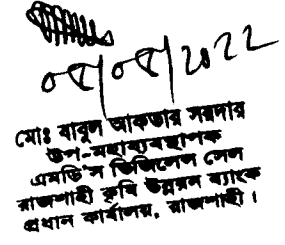 ০৮/০৮/2022
মোঃ বাবুল আকতার সরদার
উপ-মহাব্যবস্থাপক
এমডি'স ভিজিলেন্স সেল
রাজশাহী কৃষি উন্নয়ন ব্যাংক
প্রধান কার্যালয়, রাজশাহী।